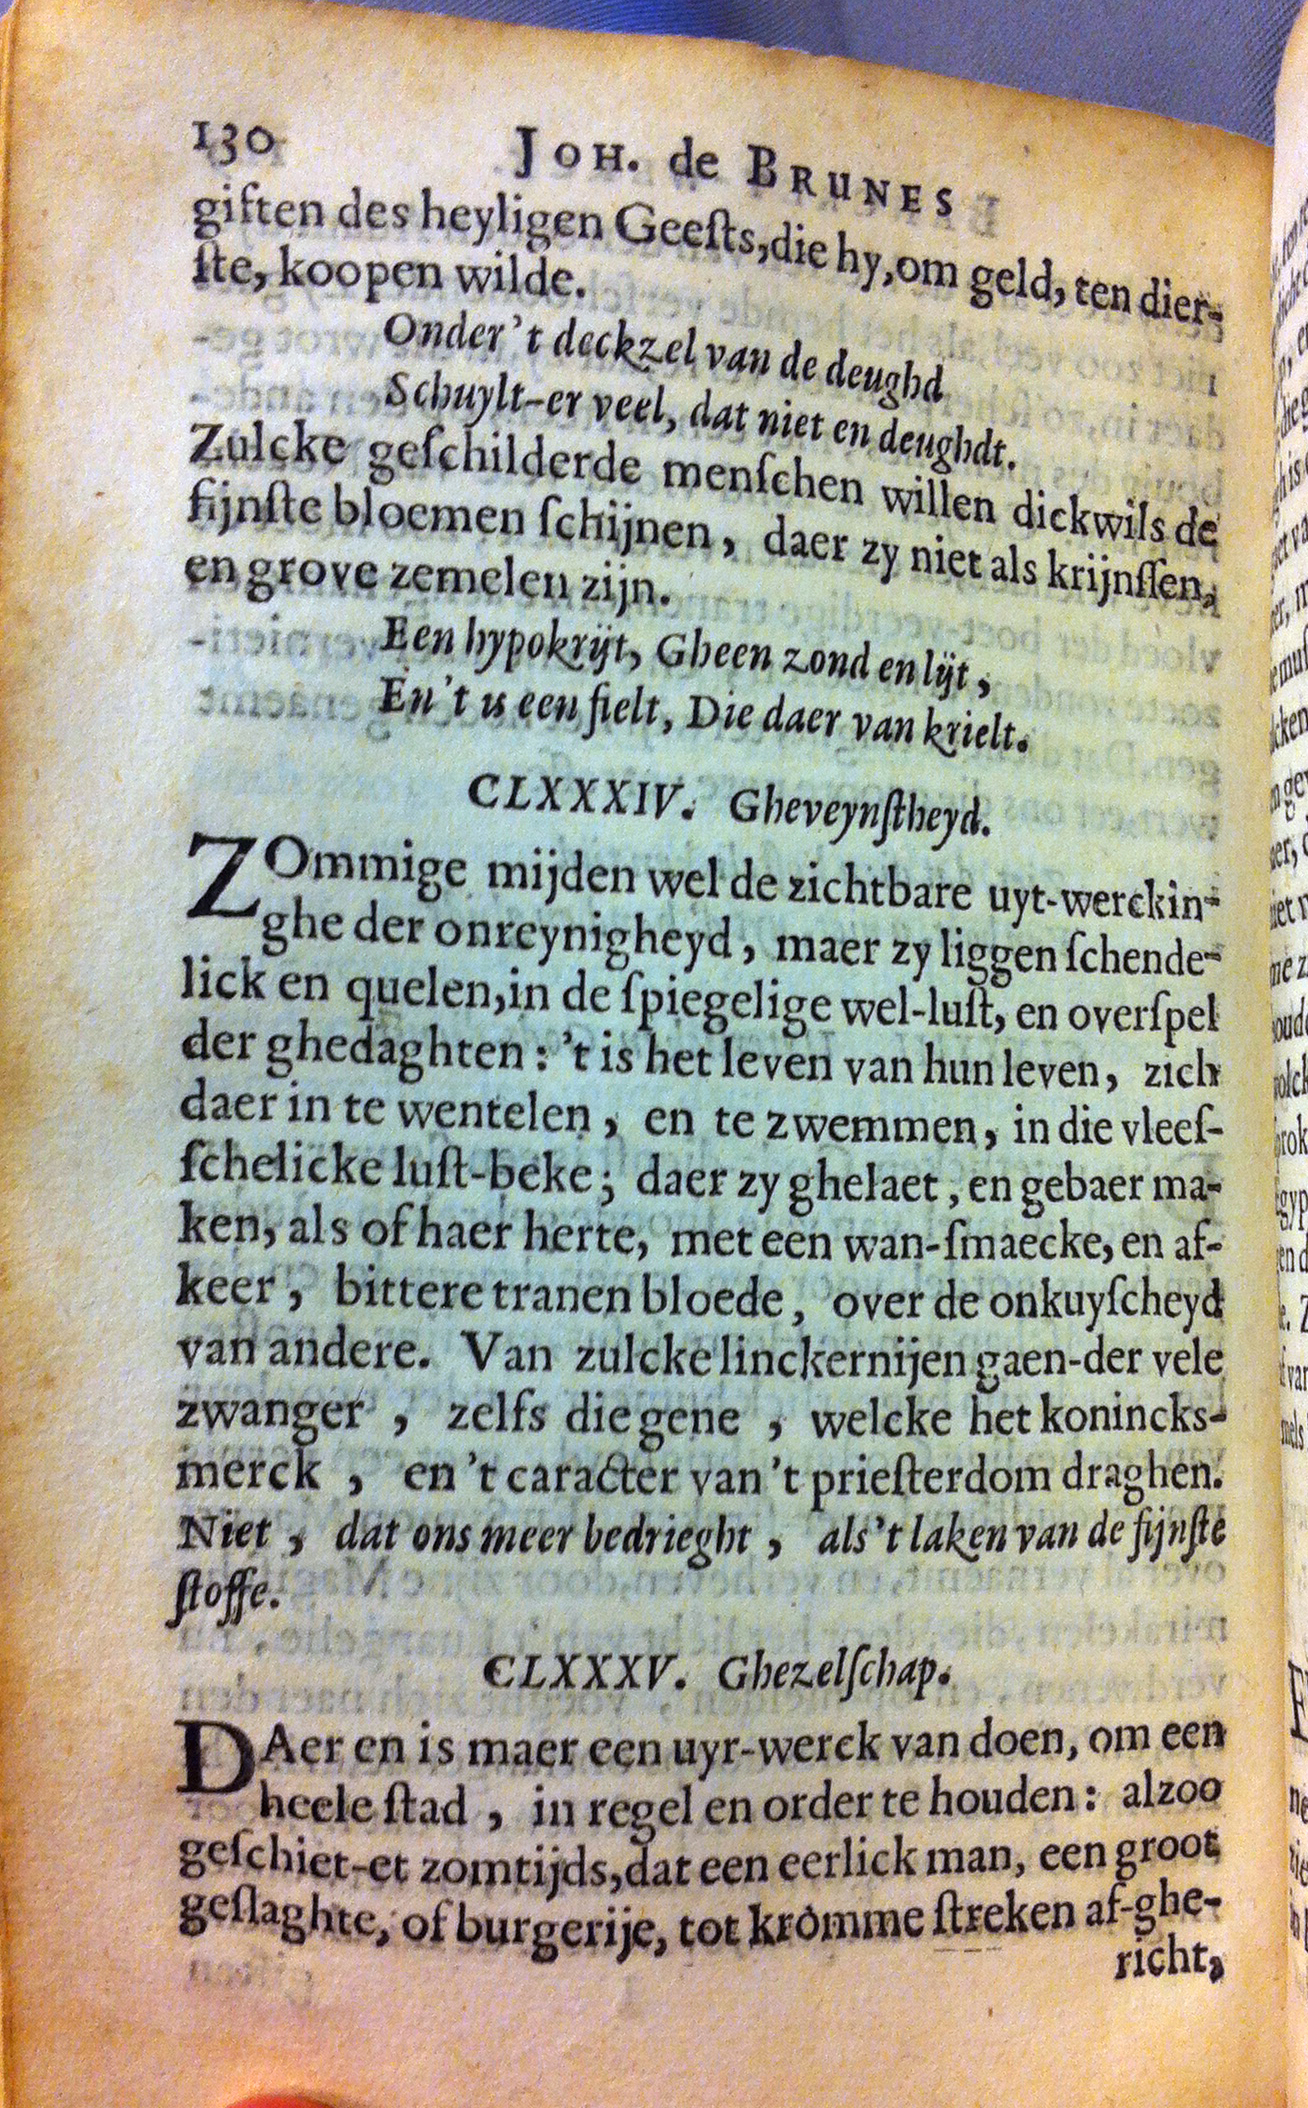 130 JOH. de BRUNES
giften des heyligen Geeſts, die hy, om geld, ten dier-
ſte, koopen wilde.
Onder 't deckzel van de deughd
Schuylt-er veel, dat niet en deughdt.
Zulcke geſchilderde menſchen willen dickwils de
fijnſte bloemen ſchijnen, daer zy niet als krijnſſen,
en grove zemelen zijn.
Een hypokrijt, Gheen zond en lijt,
En 't is een fielt, Die daer van krielt.
CLXXXIV. Gheveynſtheyd.
ZOmmige mijden wel de zichtbare uyt-werckin-
ghe der onreynigheyd, maer zy liggen ſchende-
lick en quelen, in de ſpiegelige wel-luſt, en overſpel
der ghedaghten: 't is het leven van hun leven, zich
daer in te wentelen, en te zwemmen, in die vleeſ-
ſchelicke luſt-beke; daer zy ghelaet, en gebaer ma-
ken, als of haer herte, met een wan-ſmaecke, en af-
keer, bittere tranen bloede, over de onkuyſcheyd
van andere. Van zulcke linckernijen gaen-der vele
zwanger, zelfs die gene, welcke het konincks-
merck, en 't caracter van 't prieſterdom draghen.
Niet, dat ons meer bedrieght, als 't laken van de fijnſte
ſtoffe.
CLXXXV. Ghezelſchap.
DAer en is maer een uyr-werck van doen, om een
heele ſtad, in regel en order te houden: alzoo
geſchiet-et zomtijds, dat een eerlick man, een groot
geſlaghte, of burgerije, tot kromme ſtreken af-ghe-
richt,